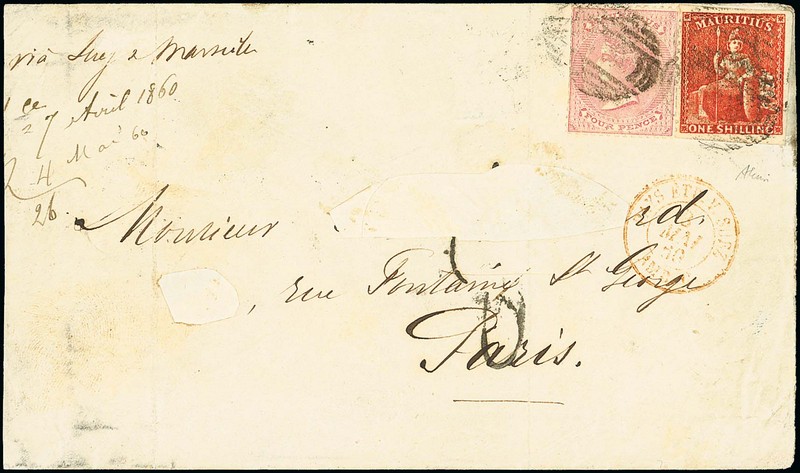 via Suez & Marseille
7 Avril 1860
4 Mai 60
26
FOUR PENCE
MAURITIUS
ONE SHILLING
Monsieur rd.
, rue Fontaine St George
Paris.
SUEZ
MAI
60